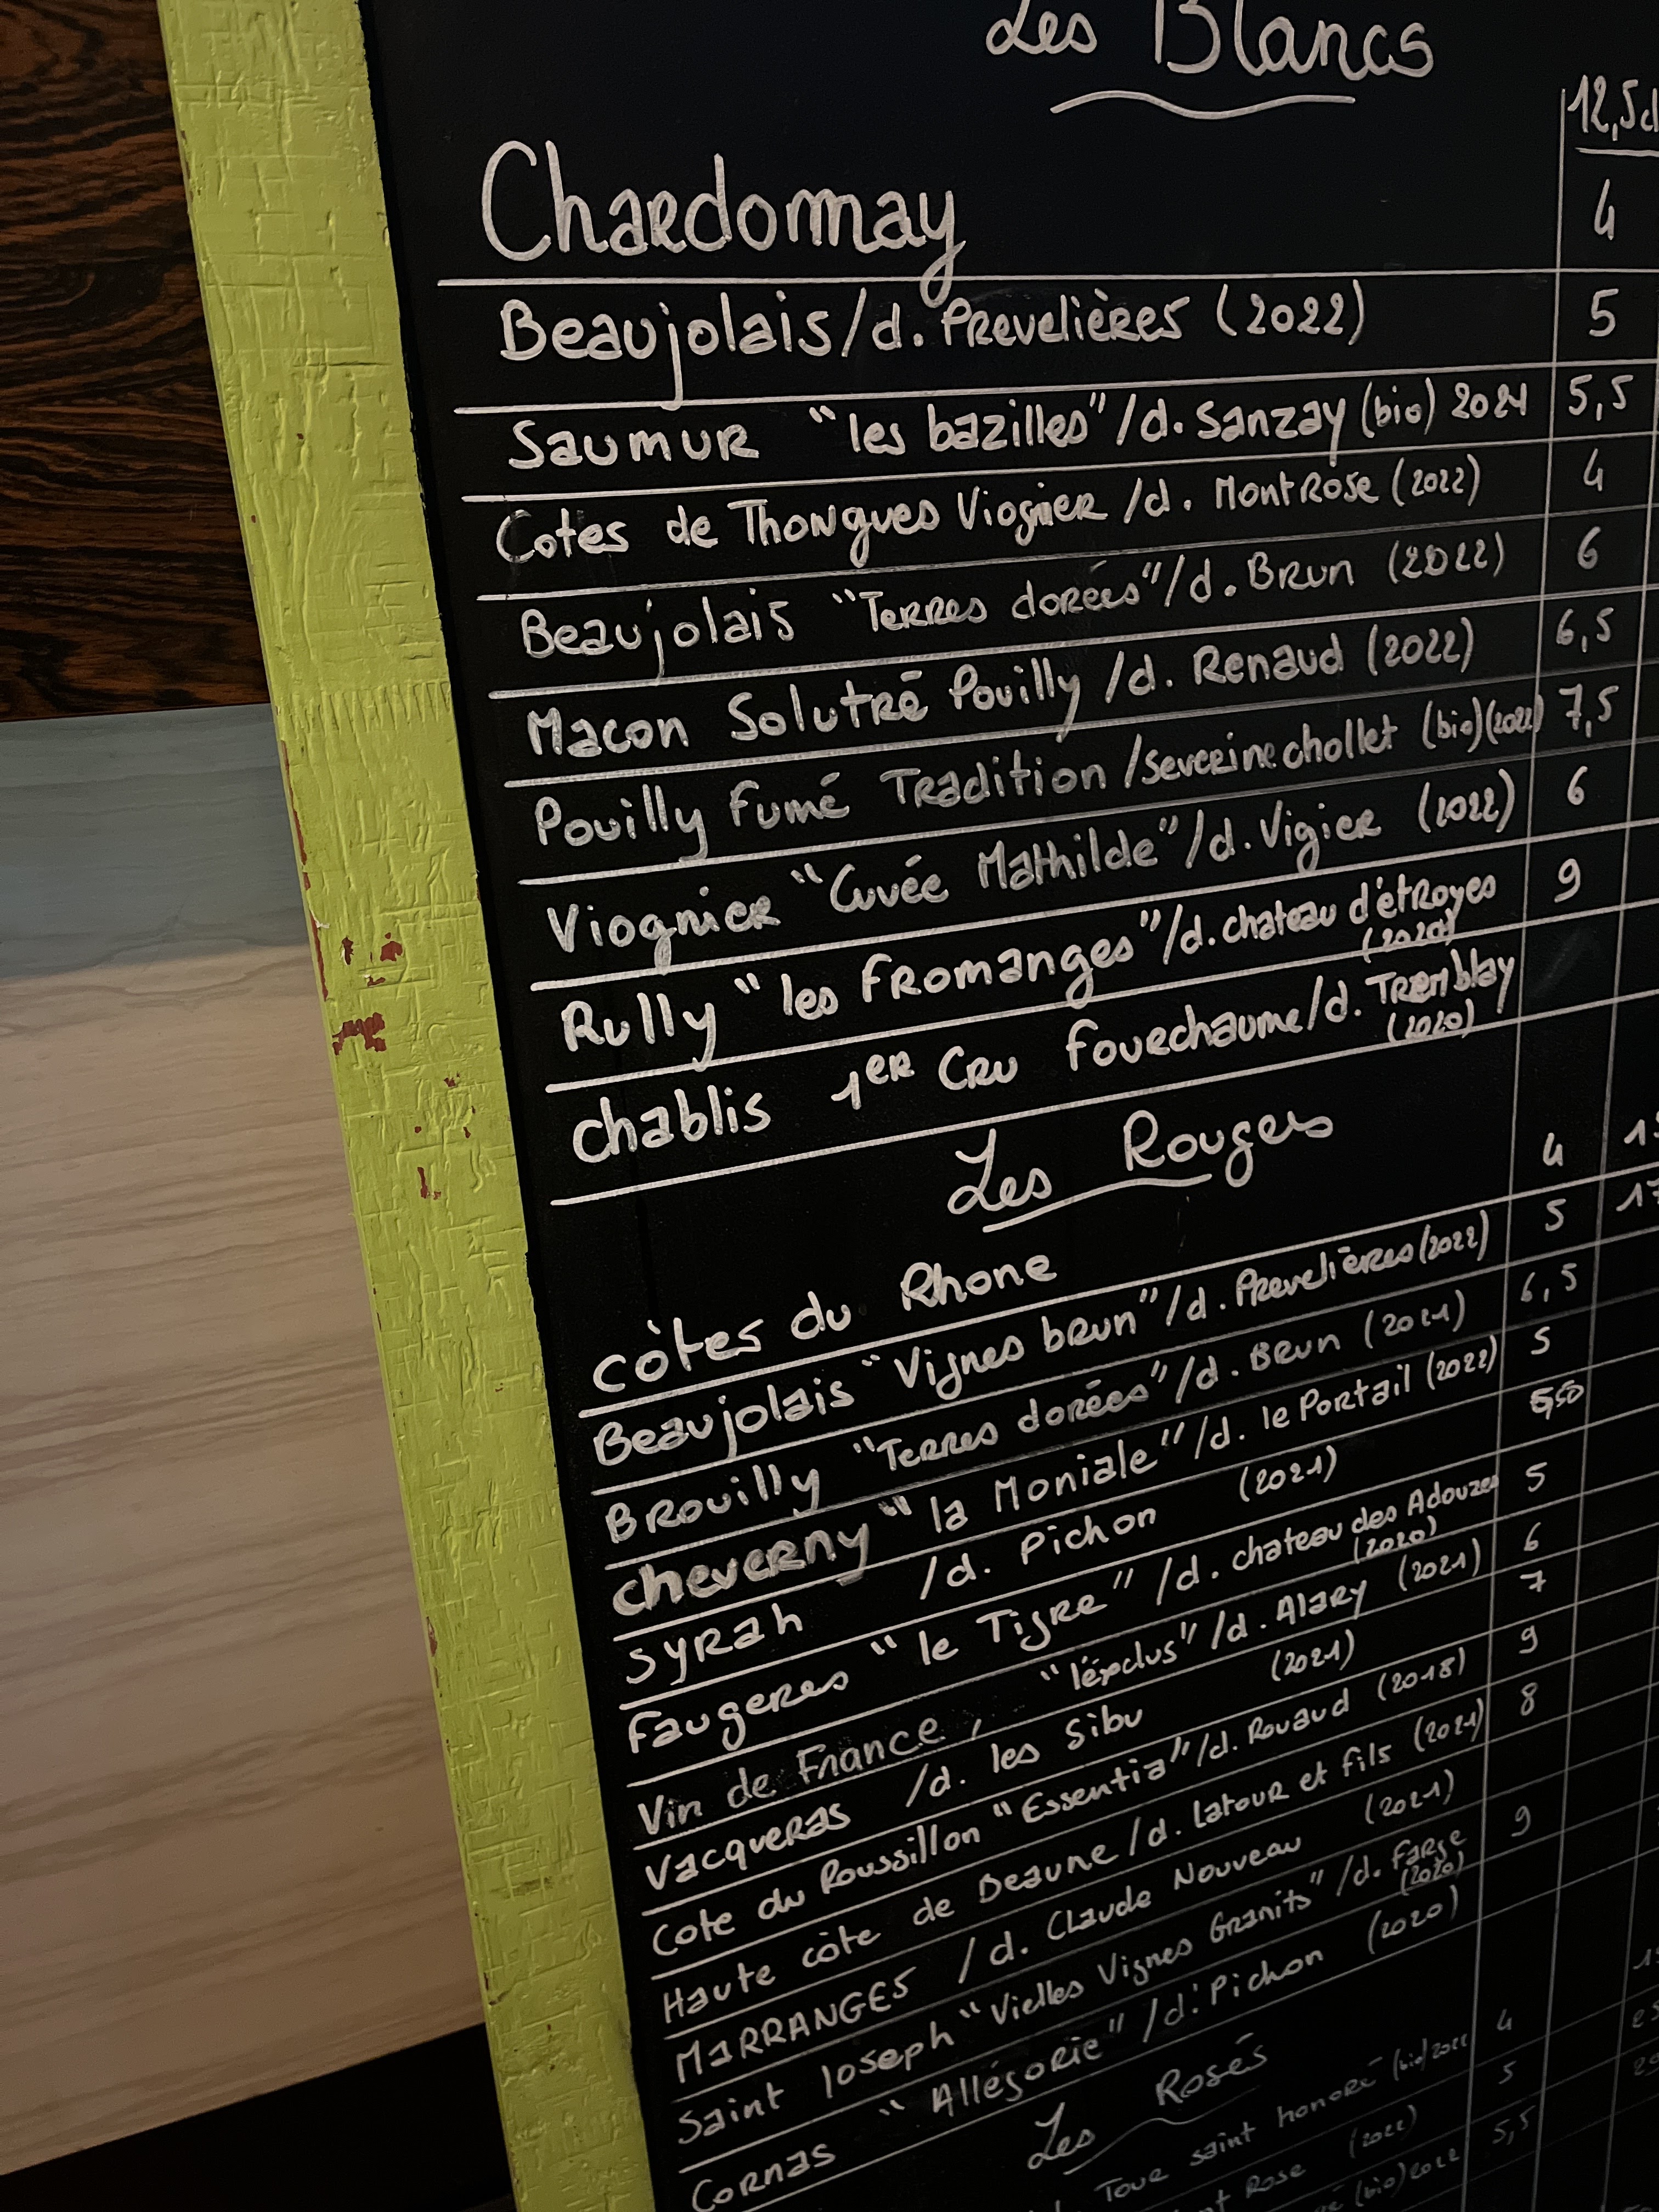 Les Blancs
12,5cl
Chardonnay 4
Beaujolais/d. Prevelières (2022) 5
Saumur "les bazilles"/d. Sanzay (bio) 2021 5,5
Cotes de Thongues Viognier /d. MontRose (2022) 4
Beaujolais "Terres dorées"/d. Brun (2022) 6
Macon Solutré Pouilly /d. Renaud (2022) 6,5
Pouilly fumé Tradition /Severine chollet (bio)(2022) 7,5
Viognier "Cuvée Mathilde"/d. Vigier (2022) 6
Rully "les fromanges"/d. chateau d'étroyes (2020) 9
chablis 1er Cru fouechaume/d. Tremblay (2020)
Les Rouges
côtes du Rhone 4
Beaujolais "Vignes brun"/d. Prevelières (2022) 5
Brouilly "Terres dorées"/d. Brun (2021) 6,5
cheverny "la Moniale"/d. le Portail (2022) 5
syrah /d. Pichon (2021) 5,50
Faugeres "le Tigre"/d. chateau des Adouzes (2020) 5
Vin de France, "l'éxclus"/d. Alary (2021) 6
Vacqueras /d. les Sibu (2021) 7
Cote du Roussillon "Essentia"/d. Rouaud (2018) 9
Haute côte de Beaune /d. latour et fils (2021) 8
MARRANGES /d. Claude Nouveau (2021)
Saint Joseph "Vielles Vignes Granits"/d. Farge (2020) 9
Cornas "Allégorie"/d. Pichon (2020)
Les Rosés
Tour saint honoré (bio) 2022 4
Rose (2022) 5
(bio) 2022 5,5